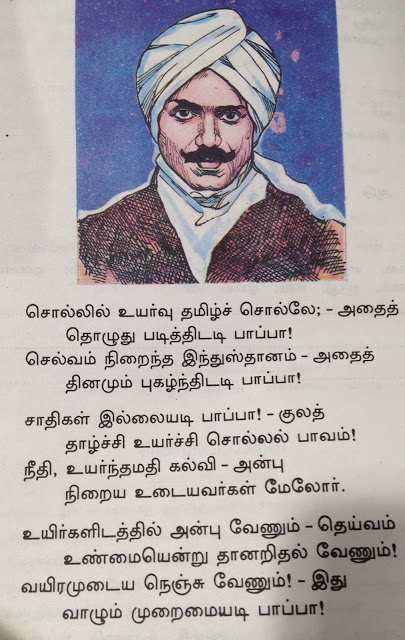 சொல்லில் உயர்வு தமிழ்ச் சொல்லே; – அதைத்
தொழுது படித்திடடி பாப்பா!
செல்வம் நிறைந்த இந்துஸ்தானம் – அதைத்
தினமும் புகழ்ந்திடடி பாப்பா!
சாதிகள் இல்லையடி பாப்பா! – குலத்
தாழ்ச்சி உயர்ச்சி சொல்லல் பாவம்!
நீதி, உயர்ந்தமதி கல்வி – அன்பு
நிறைய உடையவர்கள் மேலோர்.
உயிர்களிடத்தில் அன்பு வேணும் – தெய்வம்
உண்மையென்று தானறிதல் வேணும்!
வயிரமுடைய நெஞ்சு வேணும்! – இது
வாழும் முறைமையடி பாப்பா!